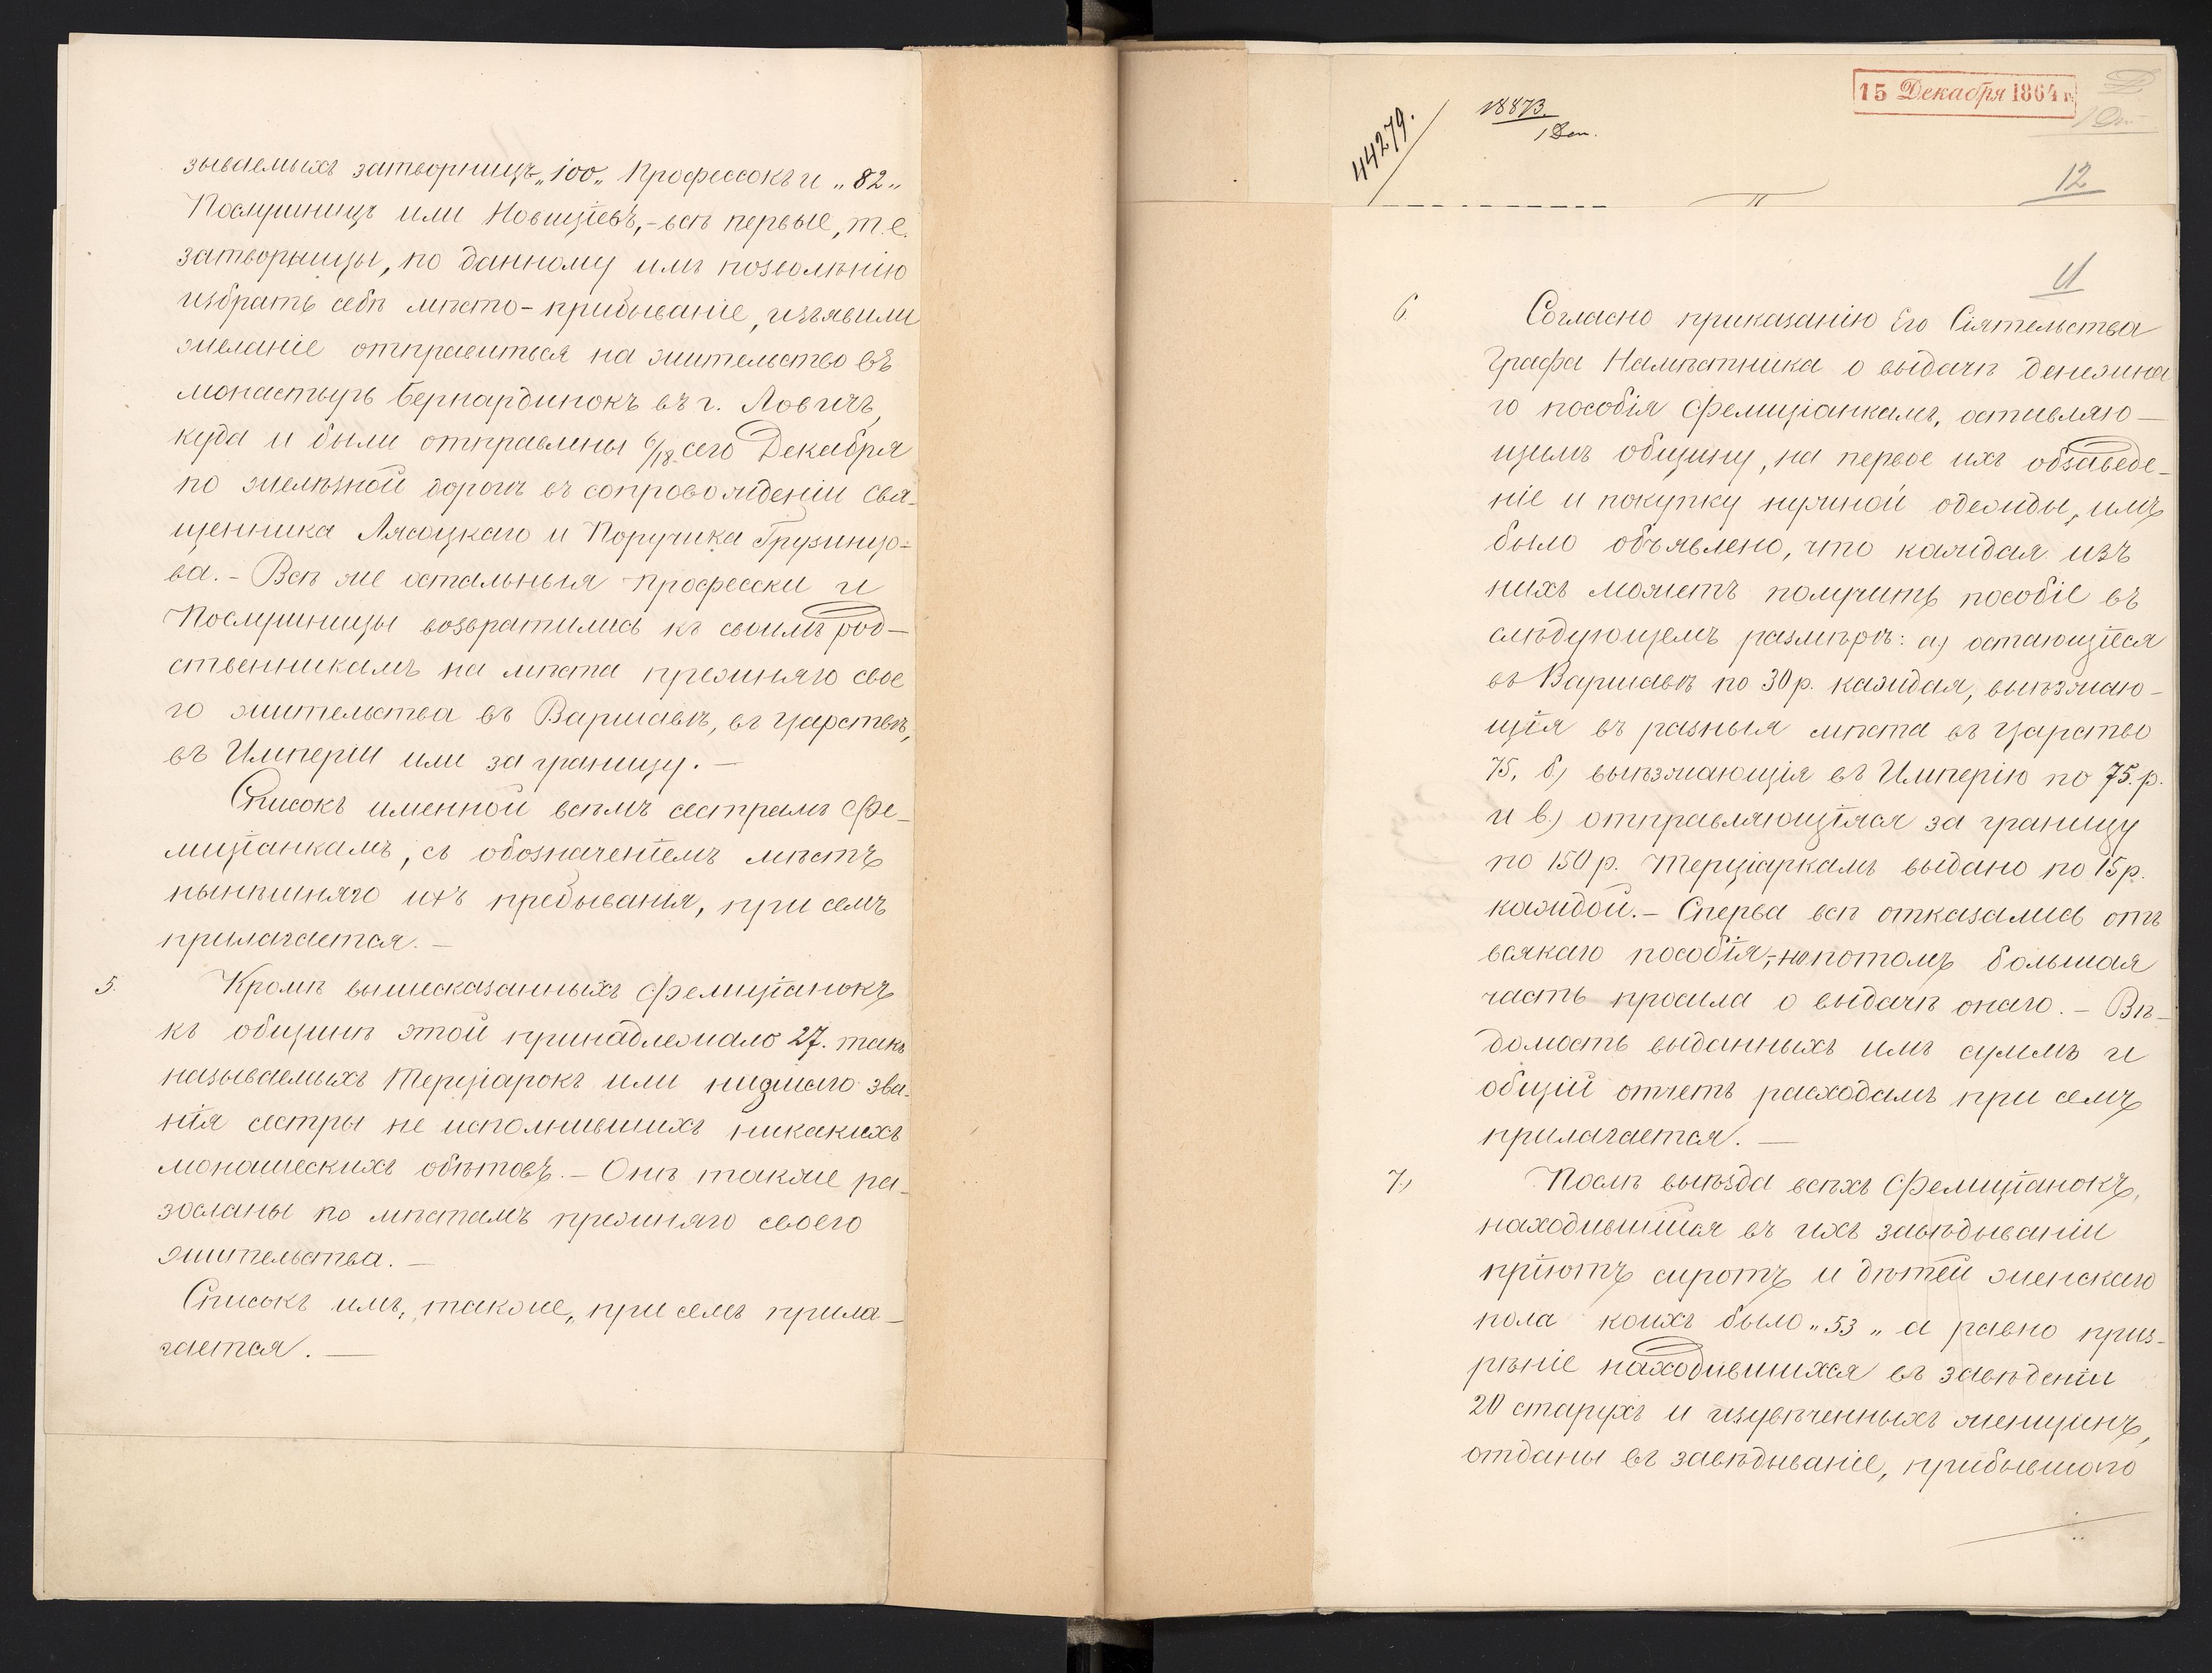 зываемыхъ затворницъ, „100„ Профессокъ и „82„
Послушницъ или Новиціевъ, - всѣ первые, т.е.
затворницы, по данному имъ позволѣнію
избрать себѣ мѣсто-прибываніе, изъявили
желаніе отправиться на жительство въ
монастырь Бернардинокъ въ г. Ловичъ,
куда и были отправлены 6/18 сего Декабря
по желѣзной дорогѣ въ сопровожденіи Свя-
щенника Лясоцкаго и Поручика Грузинцо-
ва. - Всѣ же остальныя професски и
Послушницы возвратились къ своимъ род-
ственникамъ на мѣста прежняго свое
го жительства въ Варшавѣ, въ Царствѣ,
въ Имперіи или за границу. —
Списокъ именной всѣмъ сестрамъ Фе-
лиціанкамъ, съ обозначеніемъ мѣстъ
нынѣшняго ихъ пребыванія, при семъ
прилагается. —
5. Кромѣ вышесказанныхъ Фелиціанокъ
къ общинѣ этой принадлежало 27. такъ
называемыхъ Терціарокъ или низшаго зва-
нія сестры не исполнившихъ никакихъ
монашескихъ обѣтовъ. - Онѣ также ра-
зосланы по мѣстамъ прежняго своего
жительства. —
Списокъ имъ, также, при семъ прила-
гается. —
44279.
18873.
1 Деп.
15 Декабря 1864 г.
12
11
6. Согласно приказанію Его Сіятельства
Графа Намѣстника о выдачѣ денежна
го пособія Фелиціанкамъ, оставляю-
щимъ общину, на первое ихъ обзаведе-
ніе и покупку нужной одежды, имъ
было объявлено, что каждая изъ
нихъ можетъ получить пособіе въ
слѣдующемъ размѣрѣ: а) остающіеся
въ Варшавѣ по 30 р. каждая, выѣзжаю-
щія въ разныя мѣста въ Царство
75, б) выѣзжающія въ Имперію по 75. р.
и в.) отправляющіяся за границу
по 150 р. Терціаркамъ выдано по 15 р.
каждой. - Сперва всѣ отказались отъ
всякаго пособія, но потомъ большая
часть просила о выдачѣ онаго. - Вѣ-
домость выданныхъ имъ суммъ и
общій отчетъ расходамъ при семъ
прилагается. —
7., Послѣ выѣзда всѣхъ Фелиціанокъ,
находившійся въ ихъ завѣдываніи
пріютъ сиротъ и дѣтей женскаго
пола коихъ было „53„ а равно приз-
рѣніе находившихся въ завѣденіи
20 старухъ и изувѣченныхъ женщинъ,
отданы въ завѣдываніе, прибывшаго